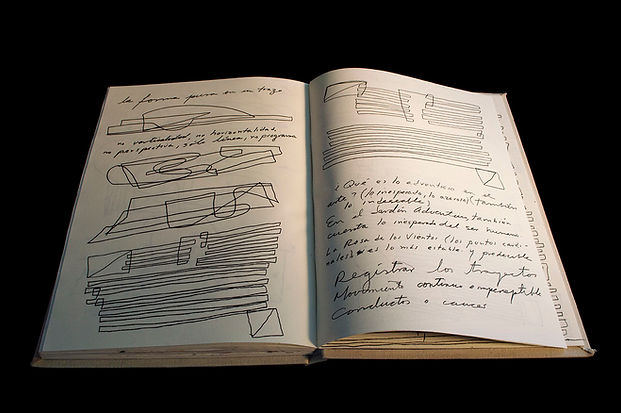 la forma pura en un trazo
no verticalidad, no horizontalidad,
no perspectiva, sólo línea, no programa
¿Qué es lo adventicio en el
arte? (lo inesperado, lo azaroso) (también
lo indeseable)
En el Jardín Adventicio, también
cuenta lo inesperado del ser humano
La Rosa de los Vientos (los puntos cardi-
nales) es lo más estable y predecible
Registrar los trayectos
Movimiento continuo e imperceptible
Conductos o cauces